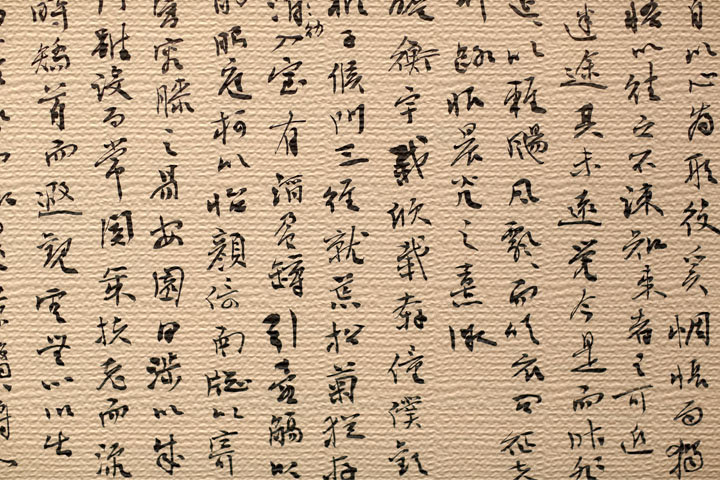 自以心為形役奚惆悵而獨
悟以往之不諫知來者之可追
迷途其未遠覺今是而昨非
以輕颺風飄飄而吹衣問征夫
路恨晨光之熹微
瞻衡宇載欣載奔僮僕歡
稚子候門三徑就荒松菊猶存
幼入室有酒盈罇引壺觴以
眄庭柯以怡顏倚南牕以寄
審容膝之易安園日涉以成
門雖設而常關策扶老而流
時矯首而遐觀雲無心以出